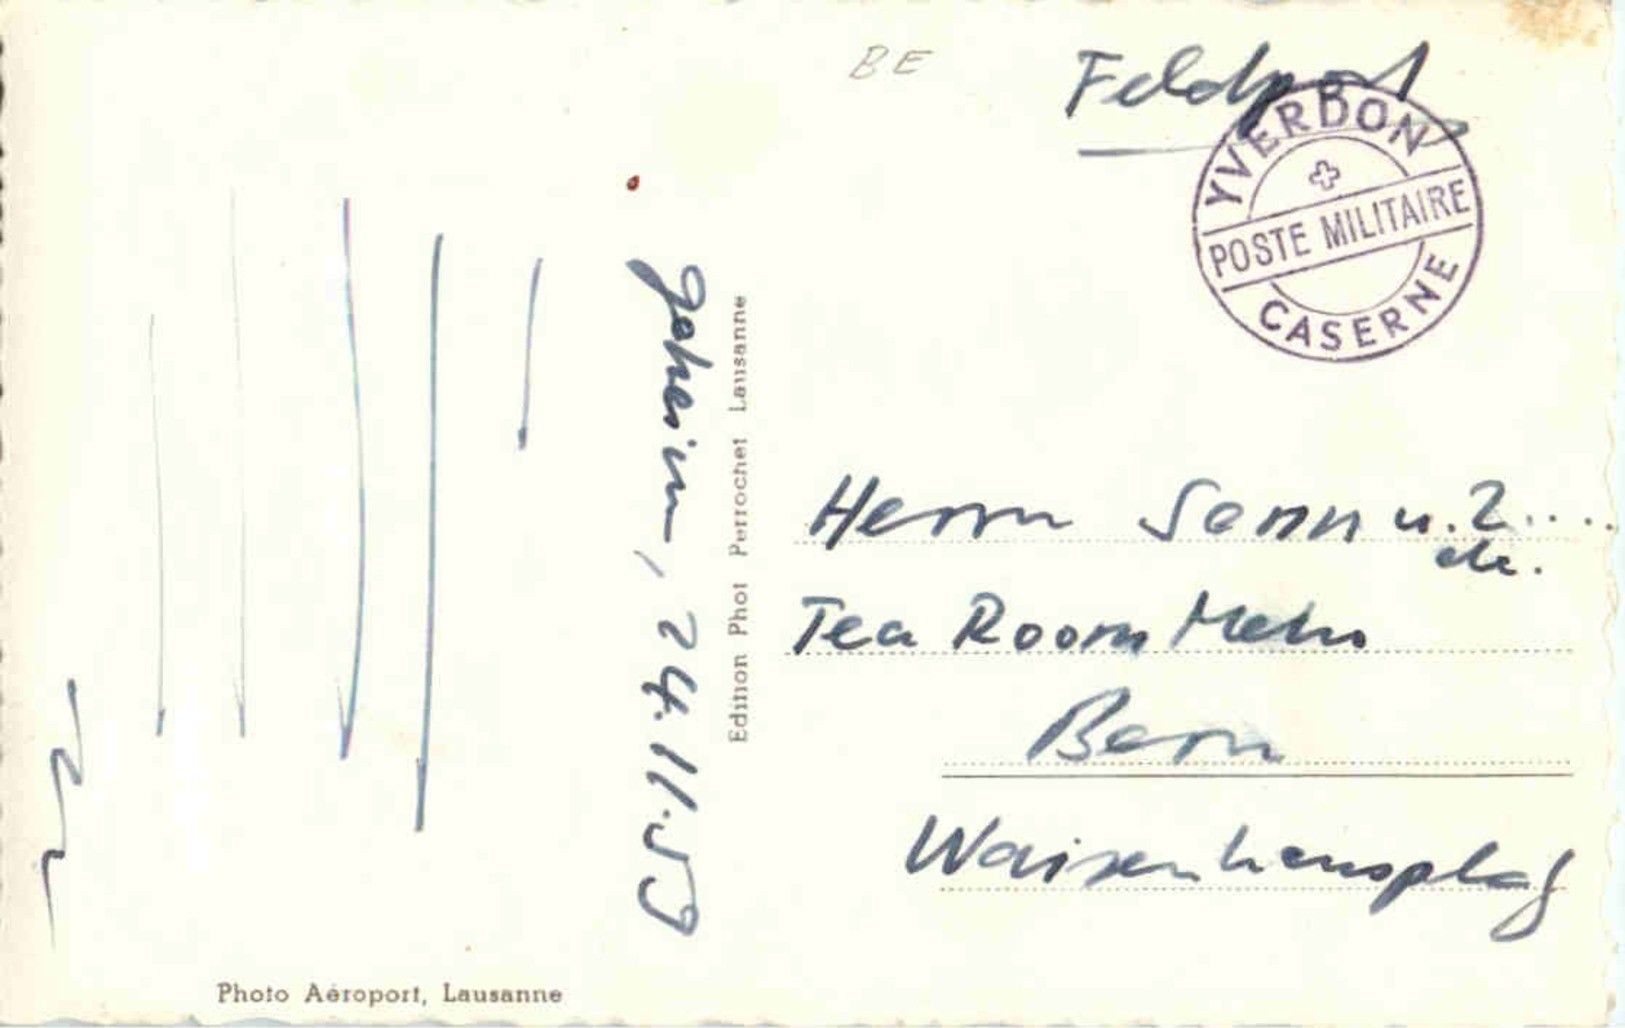 BE
Feldpost
YVERDON
POSTE MILITAIRE
CASERNE
geheim, 24.11.59
Edition Phot Perrochet Lausanne
Herrn Senn u. 2....
Tea Room
Bern
Waisenhausplatz
Photo Aéroport, Lausanne